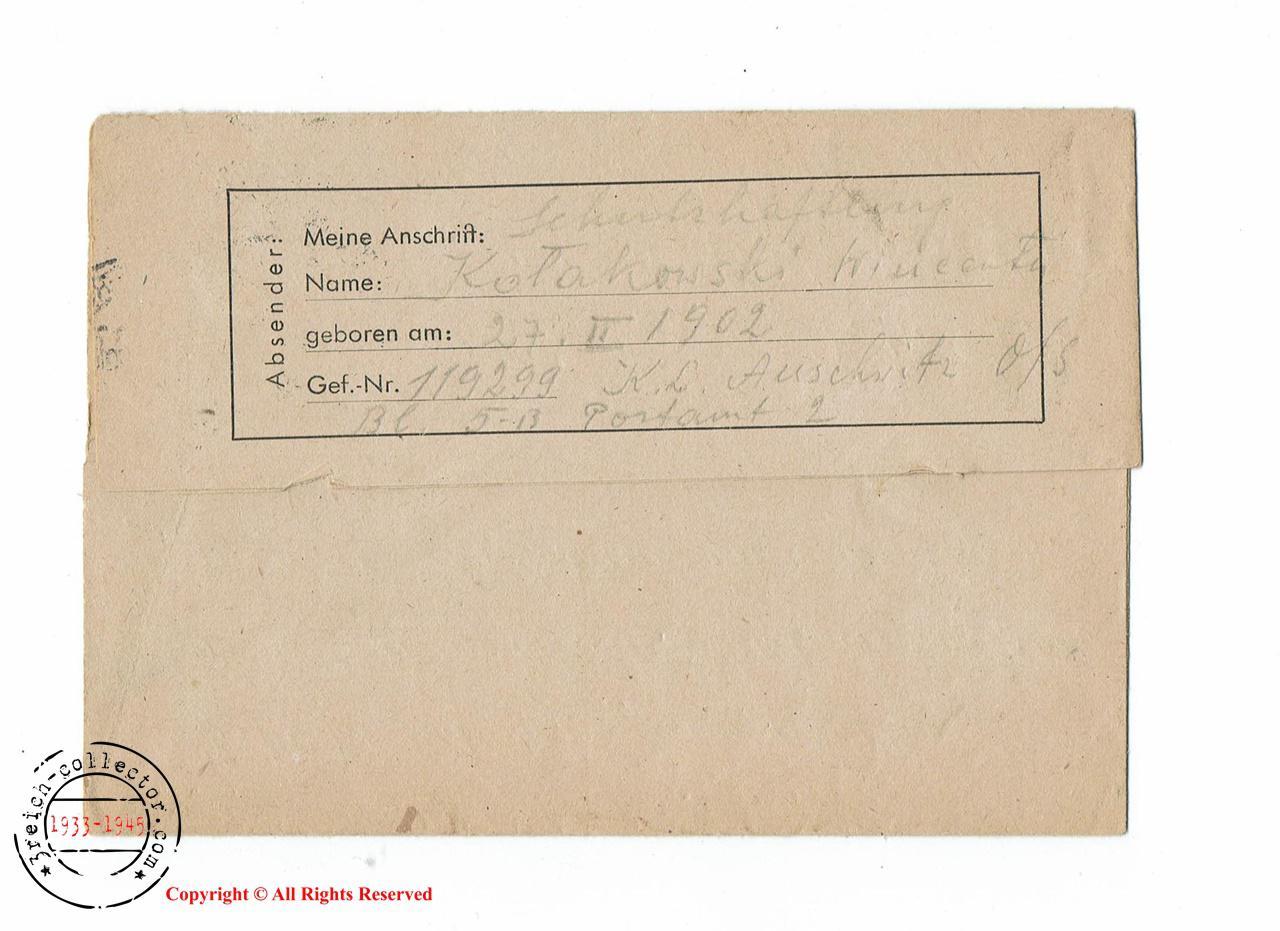 Absender:
Meine Anschrift: Schutzhäftling
Name: Kołakowski Wincenty
geboren am: 27. II 1902
Gef.-Nr. 119299 K.L. Auschwitz O/S
Bl. 5-B Postamt 2
3reich-collector.com
1933-1945
Copyright © All Rights Reserved